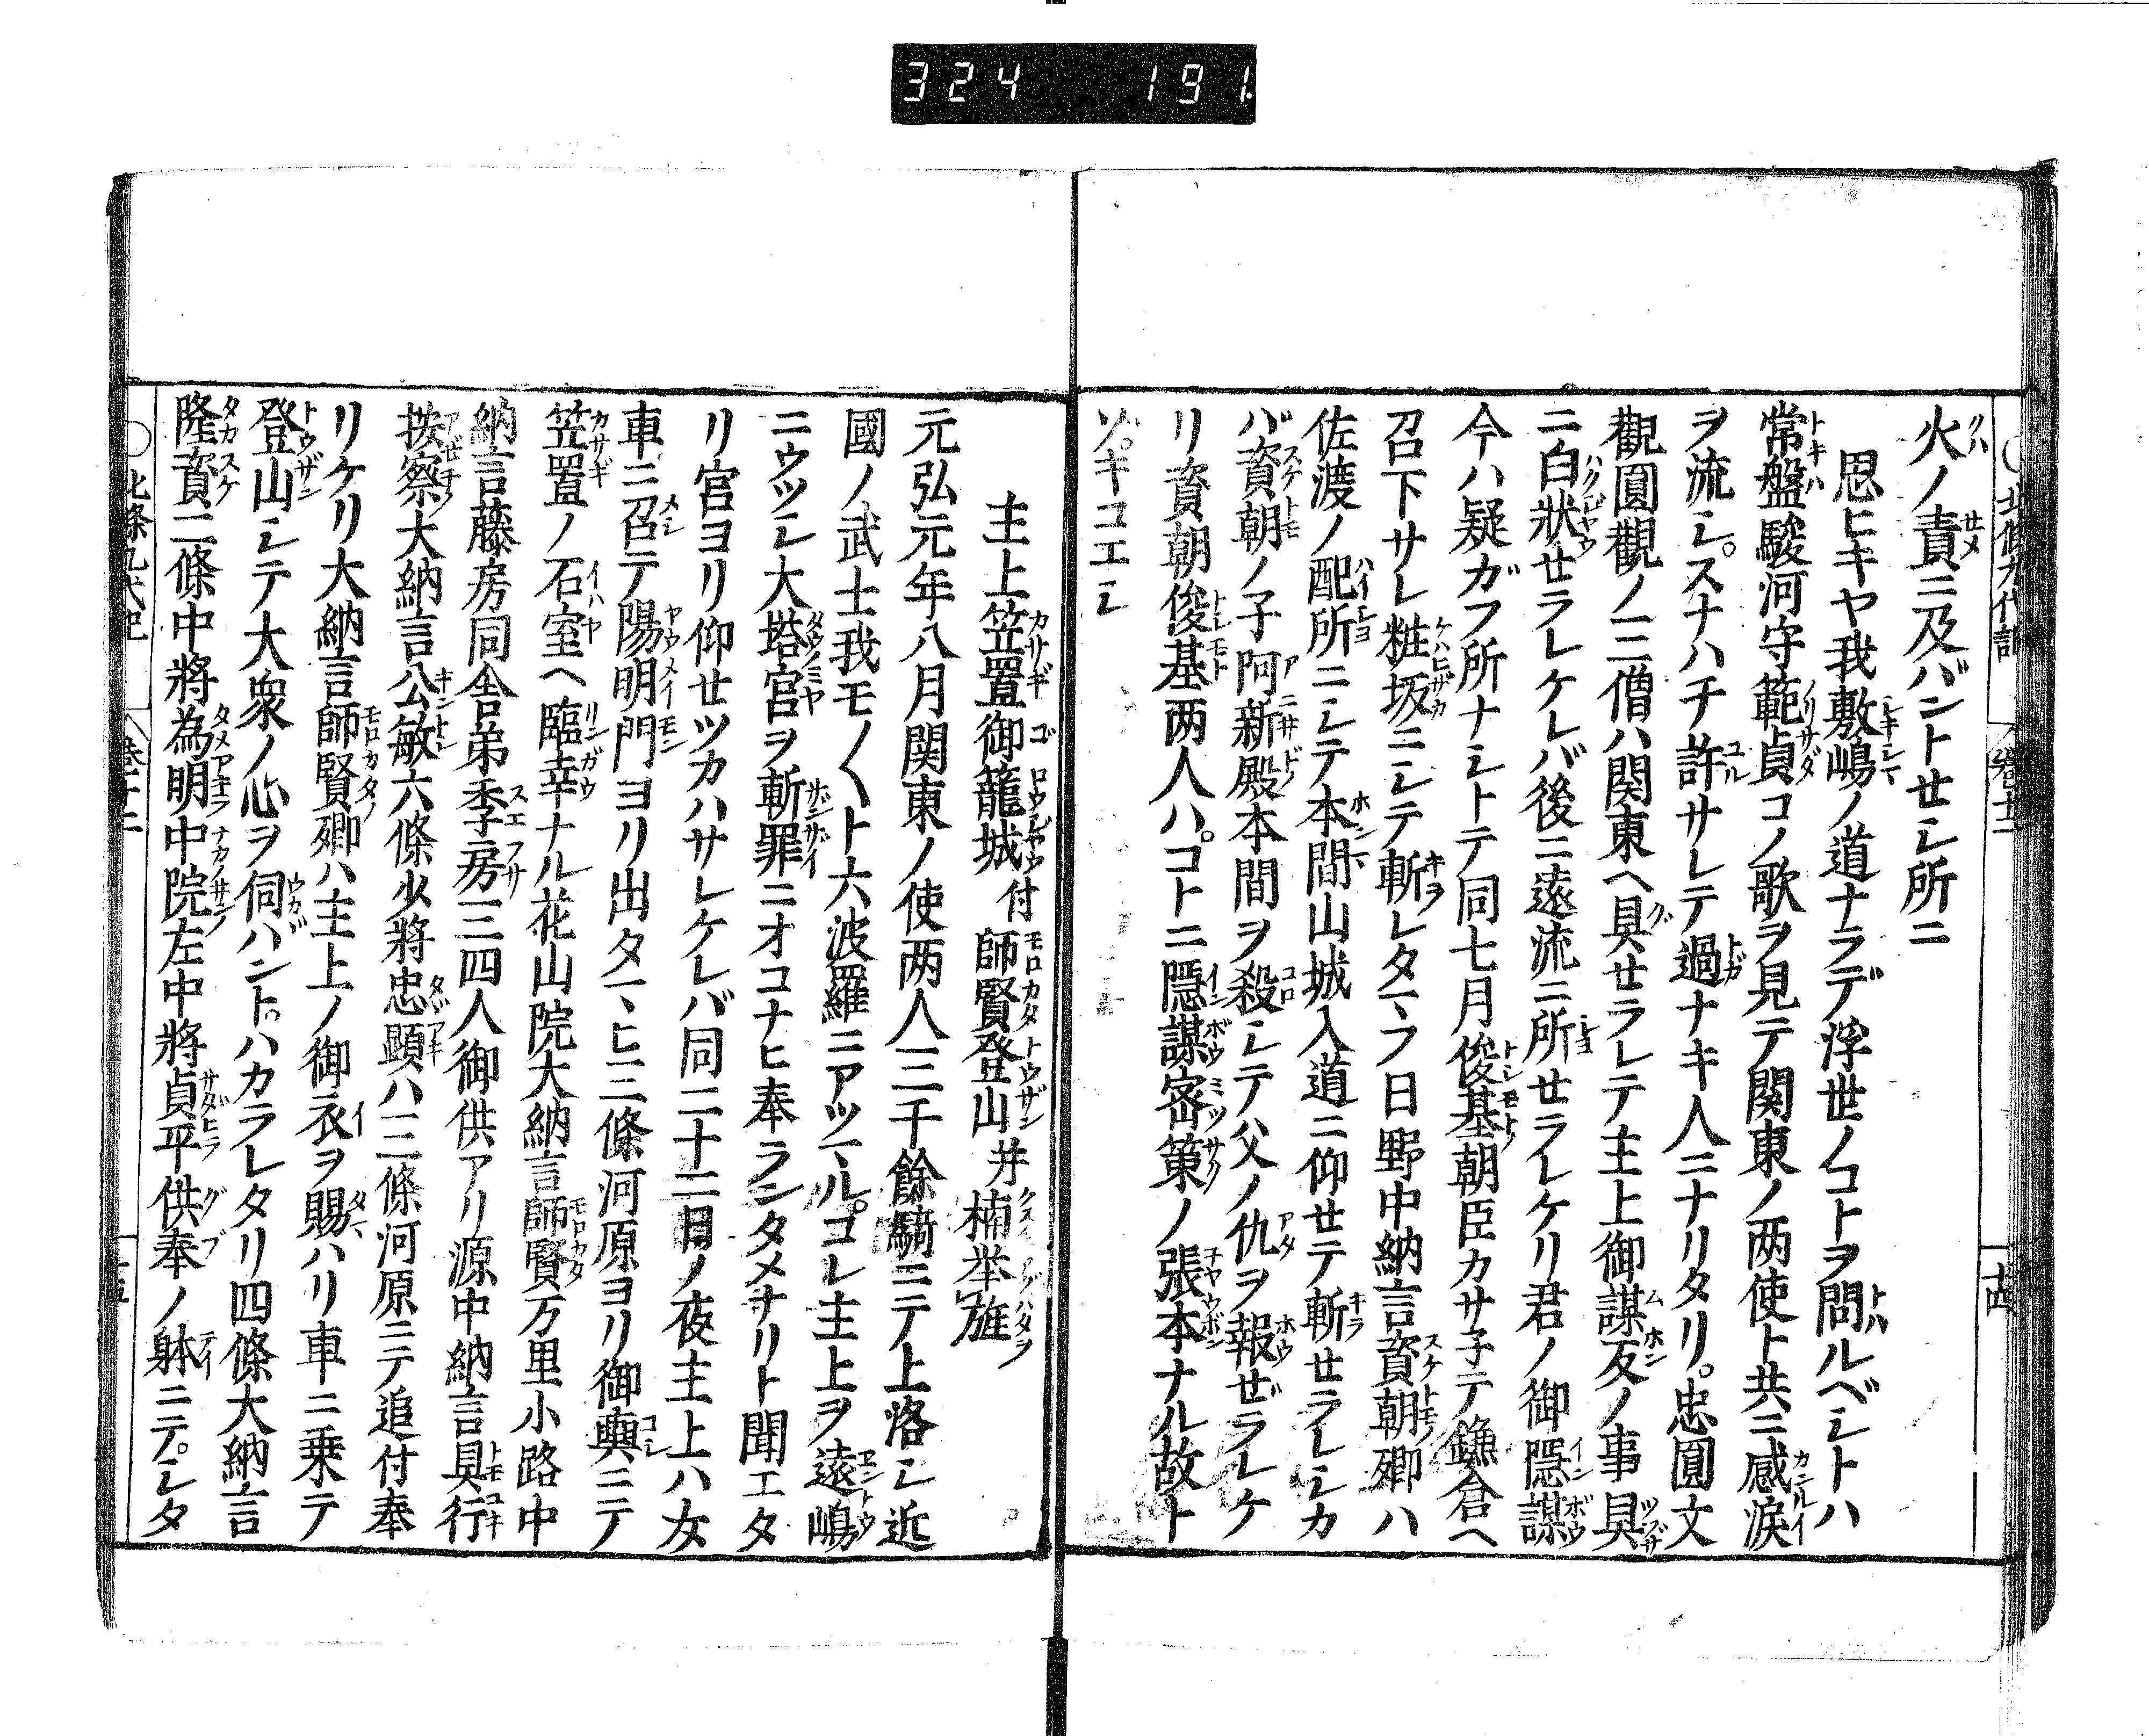 324 191.
○北條九代記 巻十二 十四
火ノ責ニ及バントセシ所ニ
思ヒキヤ我敷嶋ノ道ナラデ浮世ノコトヲ問ルベシトハ
常盤駿河守範貞コノ歌ヲ見テ関東ノ両使ト共ニ感涙
ヲ流シ。スナハチ許サレテ過ナキ人ニナリタリ。忠圓文
觀圓觀ノ三僧ハ関東ヘ具セラレテ主上御謀反ノ事具
ニ白狀セラレケレバ後ニ遠流ニ所セラレケリ君ノ御隠謀
今ハ疑ガフ所ナシトテ同七月俊基朝臣カサ子テ鎌倉ヘ
召下サレ粧坂ニシテ斬レタマフ日野中納言資朝卿ハ
佐渡ノ配所ニシテ本間山城入道ニ仰セテ斬セラレシカ
バ資朝ノ子阿新殿本間ヲ殺シテ父ノ仇ヲ報ゼラレケ
リ資朝俊基両人ハ。コトニ隠謀密策ノ張本ナル故ト
ゾ。キコエシ
主上笠置御籠城付師賢登山并楠挙旌
元弘元年八月関東ノ使両人三千餘騎ニテ上洛シ近
國ノ武士我モ〳〵ト六波羅ニアツマル。コレ主上ヲ遠嶋
ニウツシ大塔宮ヲ斬罪ニオコナヒ奉ランタメナリト聞エタ
リ宮ヨリ仰セツカハサレケレバ同二十二日ノ夜主上ハ女
車ニ召テ陽明門ヨリ出タマヽヒ三條河原ヨリ御輿ニテ
笠置ノ石室ヘ臨幸ナル花山院大納言師賢万里小路中
納言藤房同舎弟季房三四人御供アリ源中納言具行
按察大納言公敏六條少將忠顕ハ三條河原ニテ追付奉
リケリ大納言師賢卿ハ主上ノ御衣ヲ賜ハリ車ニ乗テ
登山シテ大衆ノ心ヲ伺ハント。ハカラレタリ四條大納言
隆資二條中將為明中院左中將貞平供奉ノ躰ニテ。シタ
○北條九代記 巻十二 十五